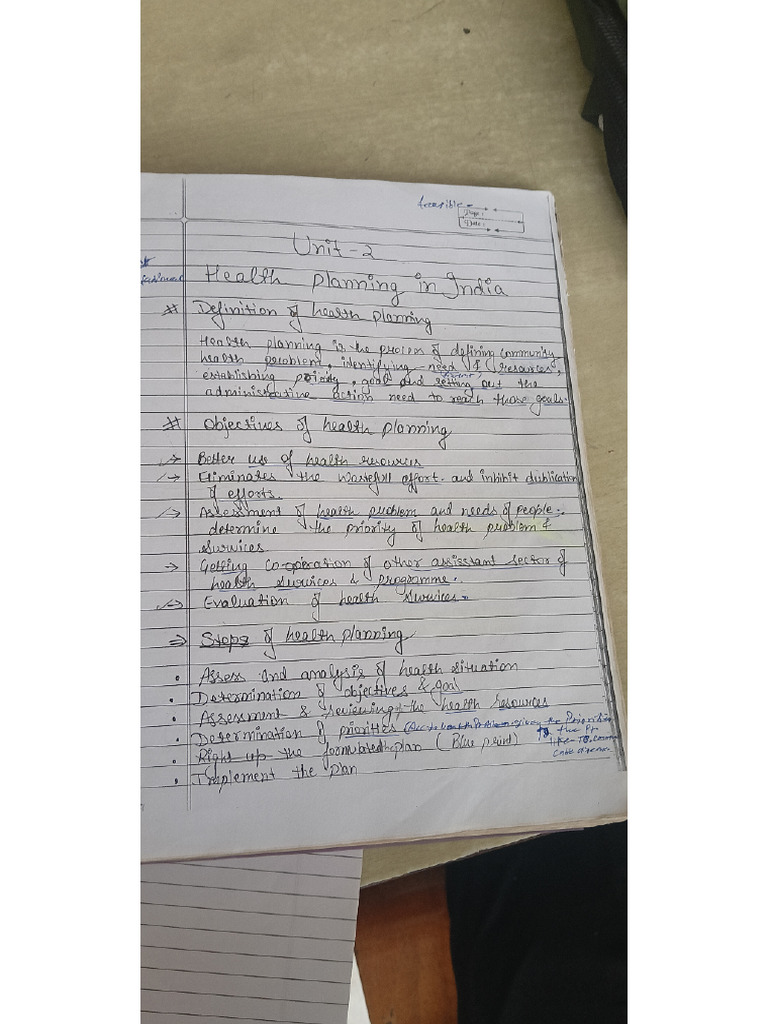 Accesible
Page:
Date:
Unit-2
Health planning in India
# Definition of health planning
Health planning is the process of defining community
health peroblem, identifying need & resources,
establishing priority, goal and setting out the
administrative action need to reach those goals.
# Objectives of health planning
→ Better use of health resources
→ Eliminates the wastefull effort. and inhibit dublication
of efforts.
→ Assessment of health problem and needs of people.
determine the priority of health problem &
services
→ Getting co-operation of other assisstant sector of
health services & programme.
→ Evaluation of health services.
⇒ Steps of health planning
• Assess and analysis of health situation
• Determination of objectives & goal
• Assessment & reviewing the health resources
• Determination of priorities
• Right up the formulated plan (Blue print)
• Implement the plan